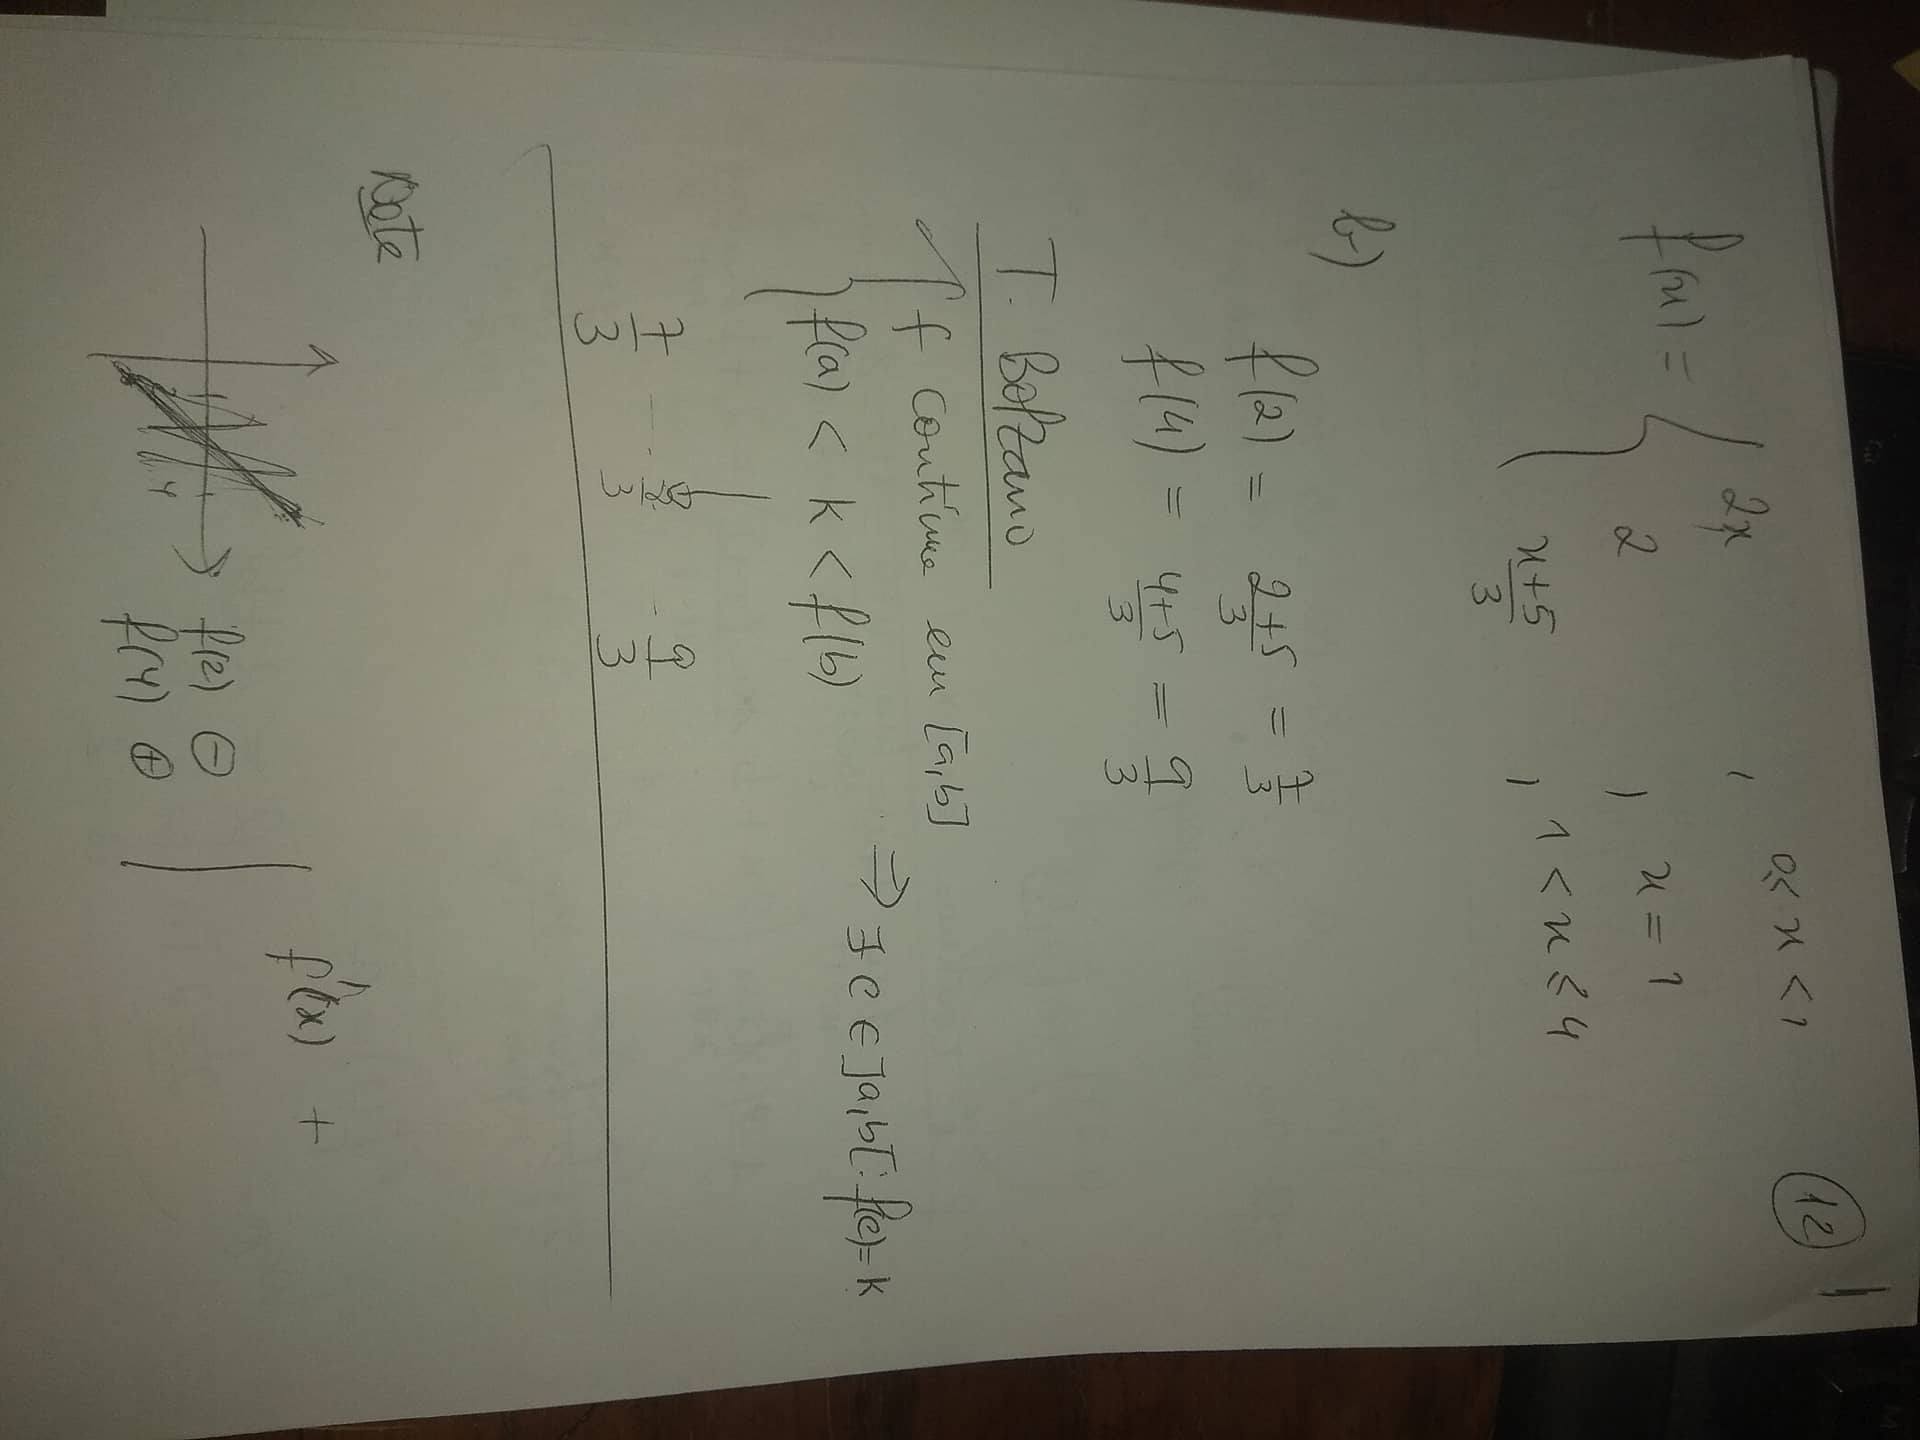 12
f(x) = { 2x , 0 ≤ x < 1
2 , x = 1
x+5/3 , 1 < x ≤ 4
b)
f(2) = 2+5/3 = 7/3
f(4) = 4+5/3 = 9/3
T. Bolzano
{ f contínua em [a,b]
f(a) < k < f(b) ⇒ ∃ c ∈ ]a,b[ : f(c) = k
7/3 -- 8/3 - 9/3
Note
f'(x) +
f(2) ⊖
4 f(4) ⊕